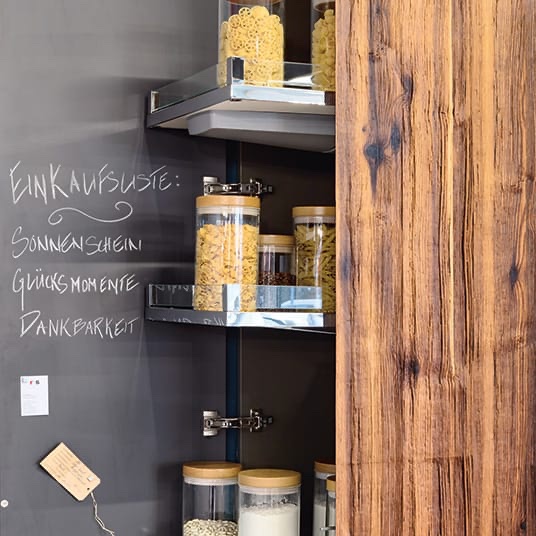 EINKAUFSLISTE:
SONNENSCHEIN
GLÜCKSMOMENTE
DANKBARKEIT